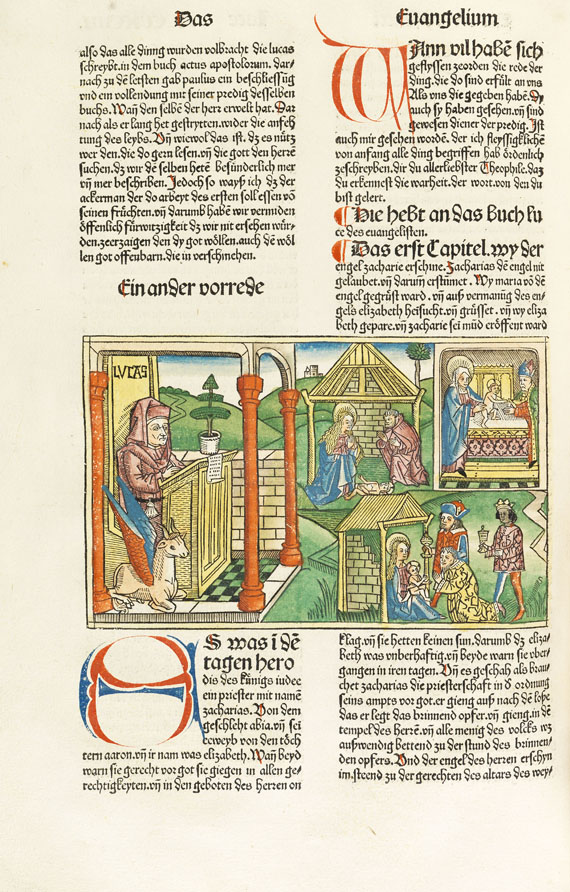 Das
Euangelium
also das alle dinng wurden volbracht die lucas
schreybt.in dem buch actus apostolorum. dar⸗
nach zů dē letsten gab paulus ein beschliessūg
vnd ein vollendung mit seiner predig desselben
buchs. Wañ den selbē der herr erwelt hat. Dar
nach als er lang het gestrytten. wider die anfech
tung des leybs. Vñ wiewol das ist. dz es nütz
wer den. die do gern lesen. vñ die gott den herrē
suchen. dz wir dē selben hetē besünderlich mer
vñ mer beschriben. Jedoch so wayß ich dz der
ackerman der do arbeyt des ersten soll essen vō
seinen früchten. vñ darumb habē wir vermiden
öffenlich fürwitzigkeit dz wir nit ersehen wür⸗
den. zeerzaigen den dy got wöllen. auch dē wöl
len got offenbarn. die in verschmehen.
Ein ander vorrede
WAnn vil habē sich
geflyssen zeorden die rede der
ding. die do sind erfült an vns
Als vns die gegeben habē. Dy
auch sy haben gesehen. vñ sind
gewesen diener der predig. Ist
auch mir gesehen wordē. der ich fleyssigklichē
von anfang alle ding begriffen hab ördenlich
zeschreyben. dir du allerliebster Theophile. daz
du erkennest die warheit. der wort. von den du
bist gelert.
Hie hebt an das buch lu
ce des euangelisten.
Das erst Capitel. wy der
engel zacharie erschine. Zacharias dē engel nit
gelaubet. vñ darum erstūmet. Wy maria vō dē
engel gegrüst ward. vñ auß vermanūg des en⸗
gels elizabeth heisucht. vñ grüsset. vñ wy eliza
beth gepare. vñ zacharie sei mūd eröffent ward
LVCAS
ES was ī dē
tagen hero
dis des künigs iudee
ein priester mit namē
zacharias. Von dem
geschlecht abia. vñ sei
eeweyb von den töch
tern aaron. vñ ir nam was elizabeth. Wañ beyd
warn sie gerecht vor got sie giegen in allen ge⸗
rechtigkeyten. vñ in den geboten des herren on
klag. vñ sie hetten keinen sun. darumb dz eliza⸗
beth was vnberhaftig. vñ beyde warn sie vber⸗
gangen in iren tagen. Vñ es geschah als brau⸗
chet zacharias die priesterschaft in d ordnung
seins ampts vor got. er gieng auß nach dē loße
das er legt das brinnend opfer. vñ gieng. in dē
tempel des herrē. vñ alle menig des volcks wz
außwendig bettend zu der stund des brinnen⸗
den opfers. Vnd der engel des herren erschyn
im. steend zu der gerechten des altars des wey⸗